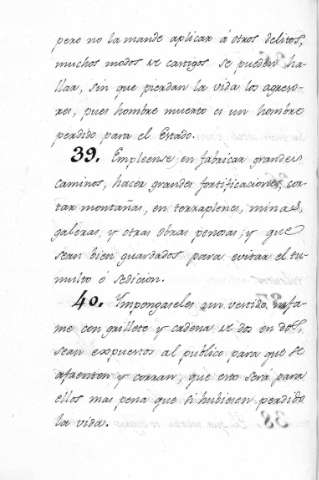 pero no la mande aplicar á otros delitos,
muchos modos de castigos se pueden ha-
llar, sin que pierdan la vida los agreso-
res, pues hombre muerto es un hombre
perdido para el Estado.
39. Empleense en fabricar grandes
caminos, hacer grandes fortificaciones, cor-
tar montañas, en terraplenes, minas,
galeras, y otras obras penosas, y que
sean bien guardados para evitar el tu-
multo ó sedicion.
40. Impongaseles un vestido infa-
me con grillete y cadena de dos en dos,
sean expuestos al público para que se
afrenten y corran, que esto será para
ellos mas pena que si hubiesen perdido
la vida.